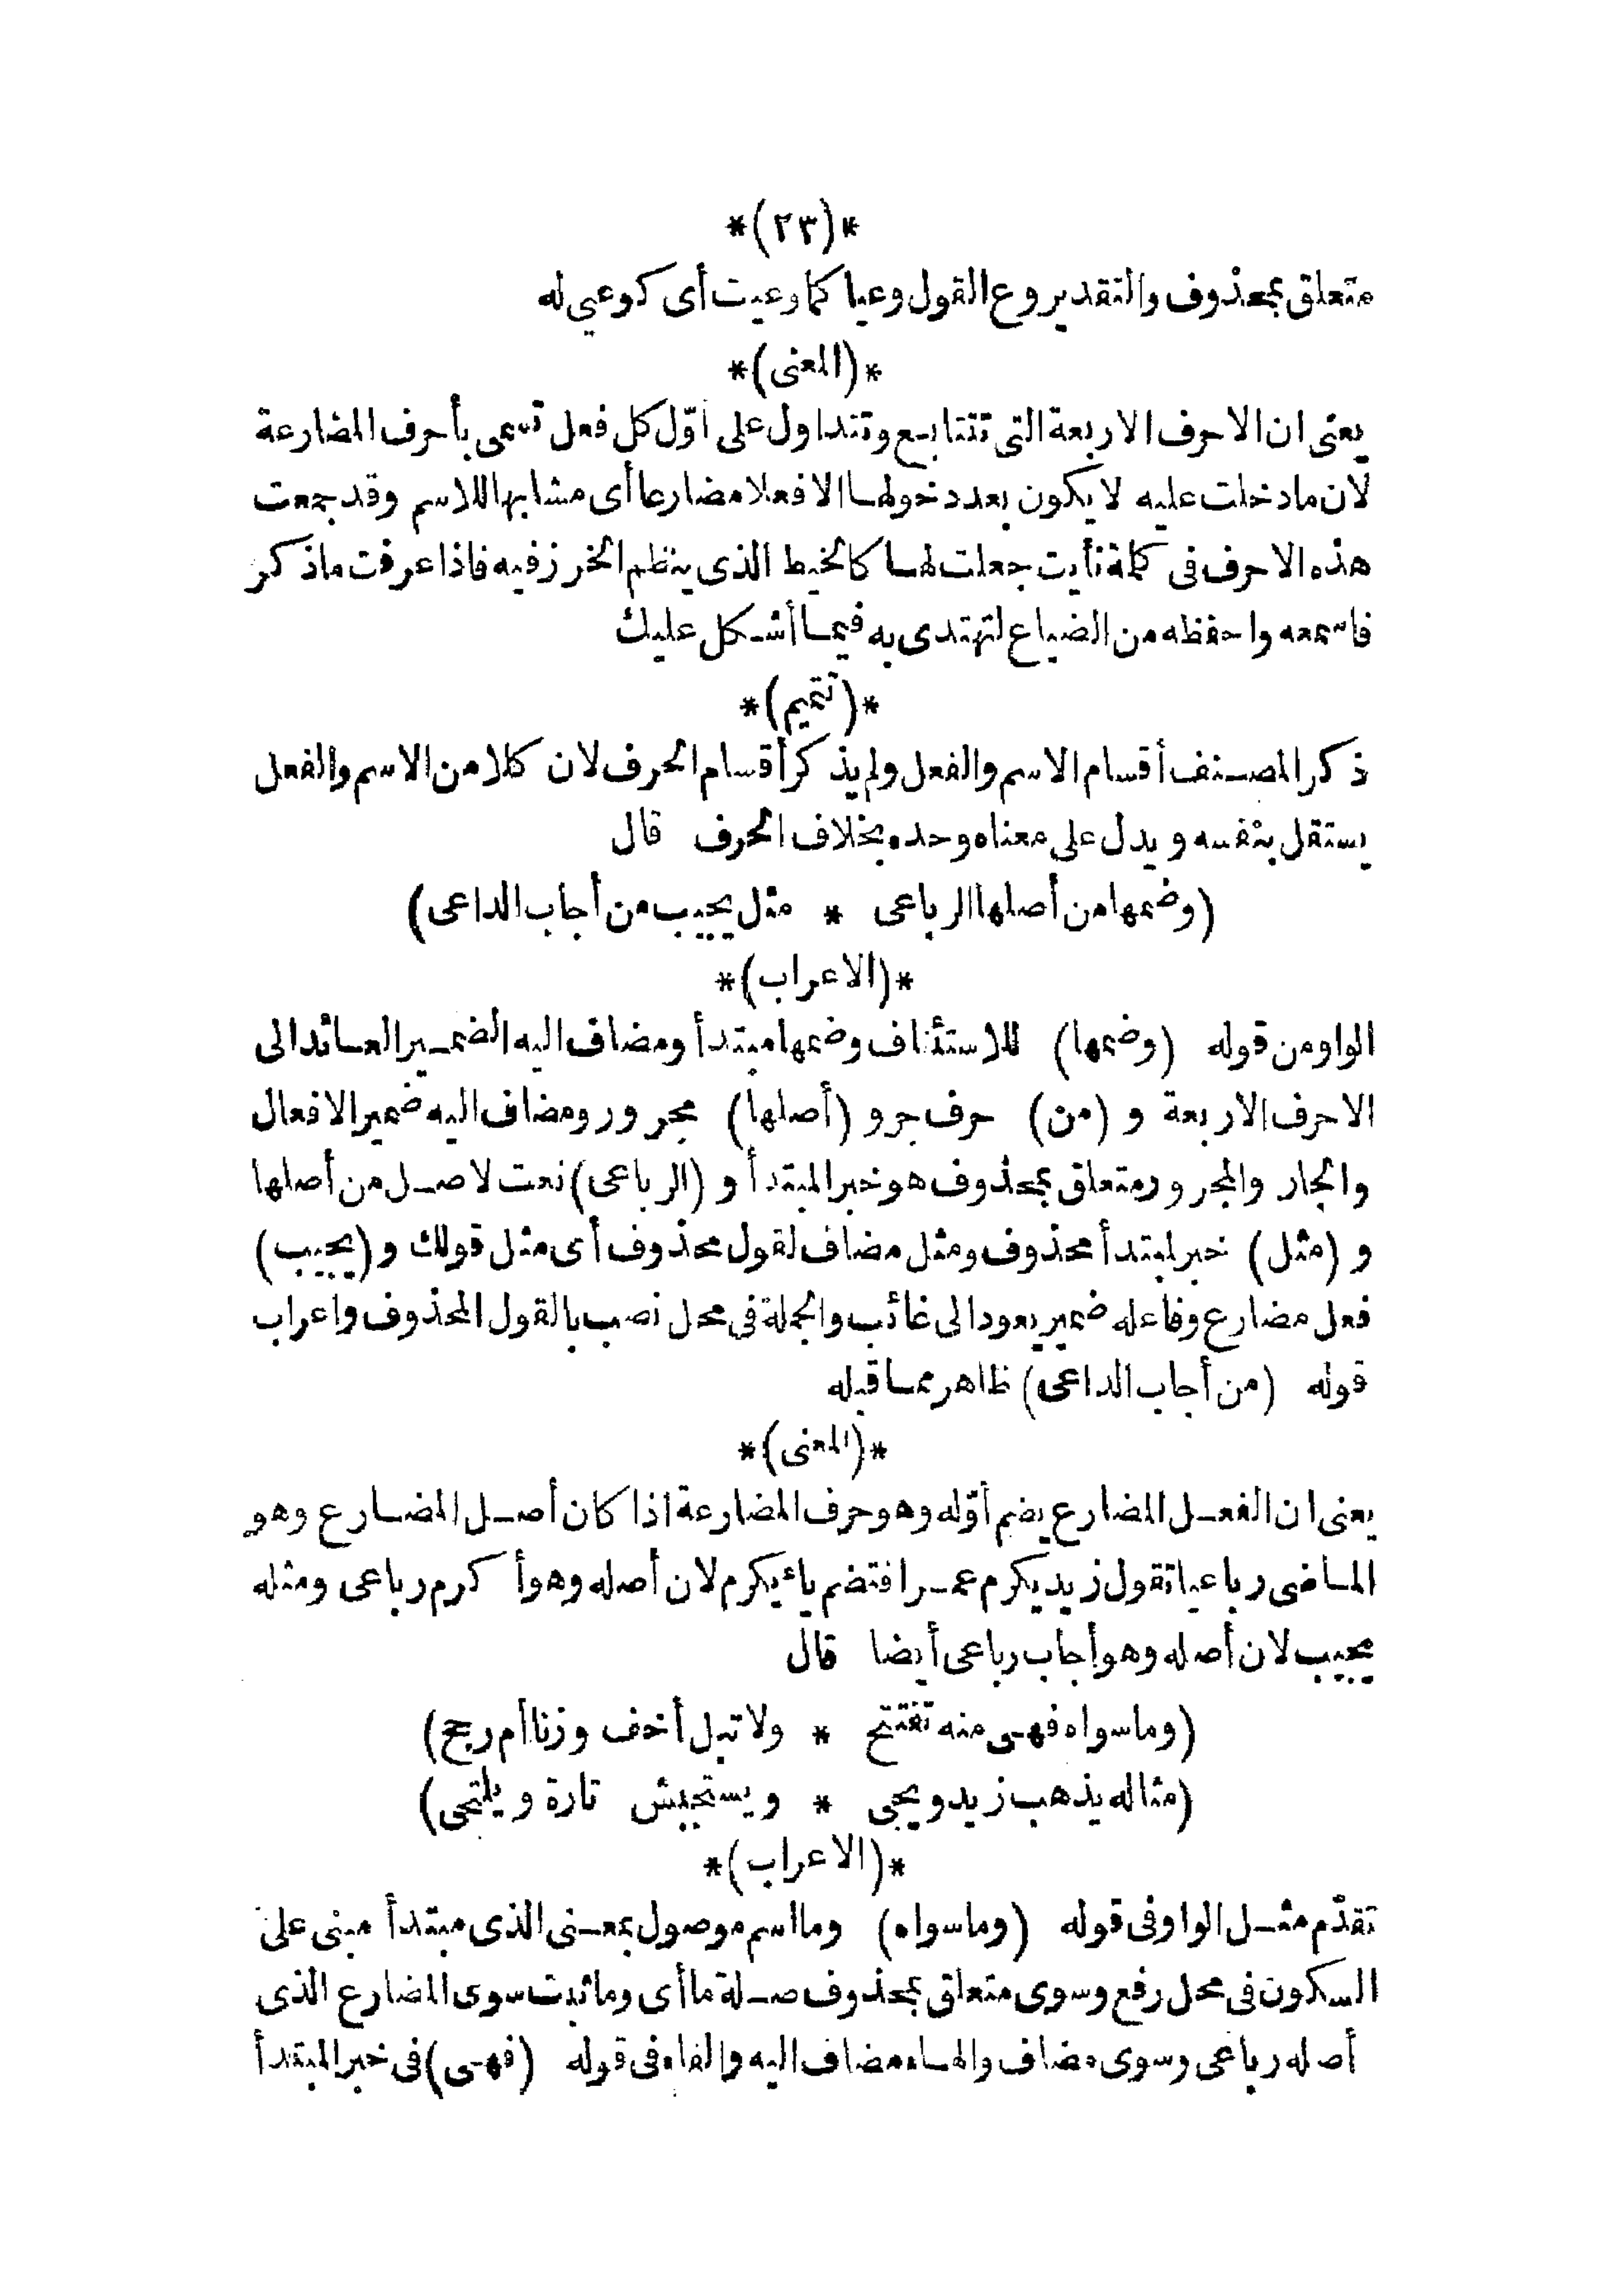 *(٢٣)*
متعلق بمحذوف والتقدير وع القول وعيا كما وعيت أى كوعيي له
*(المعنى)*
يعنى ان الاحرف الاربعة التى تتتابع وتتداول على أوّل كل فعل تسمى بأحرف المضارعة
لان ما دخلت عليه لا يكون بعد دخولها الا فعلا مضارعا أى مشابها للاسم وقد جمعت
هذه الاحرف فى كلمة نأيت جعلت لها كالخيط الذى ينظم الخرز فيه فاذا عرفت ما ذكر
فاسمعه واحفظه من الضياع لتهتدى به فيما أشكل عليك
*(تتميم)*
ذكر المصنف أقسام الاسم والفعل ولم يذكر أقسام الحرف لان كلا من الاسم والفعل
يستقل بنفسه ويدل على معناه وحده بخلاف الحرف قال
(وضمها من أصلها الرباعى * مثل يجيب من أجاب الداعى)
*(الاعراب)*
الواو من قوله (وضمها) للاستئناف وضمها مبتدأ ومضاف اليه الضمير العائد الى
الاحرف الاربعة و (من) حرف جر و (أصلها) مجرور ومضاف اليه ضمير الافعال
والجار والمجرور متعلق بمحذوف هو خبر المبتدأ و (الرباعى) نعت لاصل من أصلها
و (مثل) خبر لمبتدأ محذوف ومثل مضاف لقول محذوف أى مثل قولك و (يجيب)
فعل مضارع وفاعله ضمير يعود الى غائب والجملة فى محل نصب بالقول المحذوف واعراب
قوله (من أجاب الداعى) ظاهر مما قبله
*(المعنى)*
يعنى ان الفعل المضارع يضم أوّله وهو حرف المضارعة اذا كان أصل المضارع وهو
الماضى رباعيا تقول زيد يكرم عمرا فتضم ياء يكرم لان أصله وهو أكرم رباعى ومثله
يجيب لان أصله وهو أجاب رباعى أيضا قال
(وما سواه فهى منه تفتتح * ولا تبل أخف وزنا أم رجح)
(مثاله يذهب زيد ويجى * ويستجيش تارة ويلتجى)
*(الاعراب)*
تقدّم مثل الواو فى قوله (وما سواه) وما اسم موصول بمعنى الذى مبتدأ مبنى على
السكون فى محل رفع وسوى متعلق بمحذوف صلة ما أى وما ثبت سوى المضارع الذى
أصله رباعى وسوى مضاف والهاء مضاف اليه والفاء فى قوله (فهى) فى خبر المبتدأ